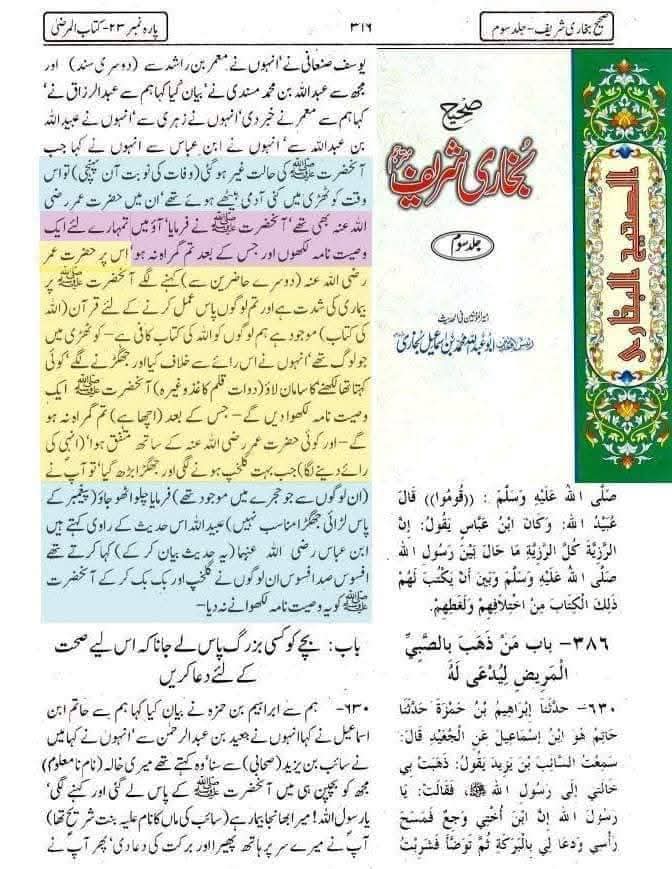 صحیح بخاری شریف - جلد سوم
۳۱۶
پارہ نمبر ۲۳ - کتاب المرضیٰ
یوسف صنعانی نے' انہوں نے معمر بن راشد سے (دوسری سند) اور
مجھ سے عبداللہ بن محمد مسندی نے' بیان کیا کہا ہم سے عبدالرزاق نے'
کہا ہم سے معمر نے خبر دی' انہوں نے زہری سے' انہوں نے عبید اللہ
بن عبداللہ سے' انہوں نے ابن عباس سے انہوں نے کہا جب
آنحضرت ﷺ کی حالت غیر ہوگئی (وفات کی نوبت آن پہنچی) تو اس
وقت کوٹھڑی میں کئی آدمی بیٹھے ہوئے تھے' ان میں حضرت عمر رضی
اللہ عنہ بھی تھے' آنحضرت ﷺ نے فرمایا' آؤ میں تمہارے لئے ایک
وصیت نامہ لکھوں اور جس کے بعد تم گمراہ نہ ہو' اس پر حضرت عمر
رضی اللہ عنہ (دوسرے حاضرین سے) کہنے لگے آنحضرت ﷺ پر
بیماری کی شدت ہے اور تم لوگوں پاس عمل کرنے کے لئے قرآن (اللہ
کی کتاب) موجود ہے ہم لوگوں کو اللہ کی کتاب کافی ہے - کوٹھڑی میں
جو لوگ تھے' انہوں نے اس رائے سے خلاف کیا اور جھگڑنے لگے' کوئی
کہتا تھا لکھنے کا سامان لاؤ (دوات قلم کاغذ وغیرہ) آنحضرت ﷺ ایک
وصیت نامہ لکھوا دیں گے - جس کے بعد (اچھا ہے) تم گمراہ نہ ہو
گے - اور کوئی حضرت عمر رضی اللہ عنہ کے ساتھ متفق ہوا' (انہی کی
رائے دینے لگا) جب بہت کلخپ ہونے لگی اور جھگڑا بڑھ گیا' تو آپ نے
(ان لوگوں سے جو حجرے میں موجود تھے) فرمایا چلو اٹھو جاؤ (پیغمبر کے
پاس لڑائی جھگڑا مناسب نہیں) عبید اللہ اس حدیث کے راوی کہتے ہیں
ابن عباس رضی اللہ عنہما (یہ حدیث بیان کر کے) کہا کرتے تھے
افسوس صد افسوس ان لوگوں نے کلخپ اور بک بک کر کے آنحضرت
ﷺ کو یہ وصیت نامہ لکھوانے نہ دیا -
باب: بچے کو کسی بزرگ پاس لے جانا کہ اس لیے صحت
کے لئے دعا کریں
۶۳۰- ہم سے ابراہیم بن حمزہ نے بیان کیا کہا ہم سے حاتم ابن
اسماعیل نے کہا انہوں نے جعید بن عبدالرحمٰن سے' انہوں نے کہا میں
نے سائب بن یزید (صحابی) سے سنا' وہ کہتے تھے میری خالہ (نام نا معلوم)
مجھ کو بچپن ہی میں آنحضرت ﷺ کے پاس لے گئی اور کہنے لگی'
یا رسول اللہ! میرا بھانجا بیمار ہے (سائب کی ماں کا نام علیہ بنت شریح تھا)
آپ نے میرے سر پر ہاتھ پھیرا اور برکت کی دعا دی' پھر آپ نے
صحیح
بخاری شریف
جلد سوم
امیر المؤمنین فی الحدیث
ابو عبداللہ محمد بن اسماعیل بخاری
الصحيح البخاري
صَلَّى اللهُ عَلَيْهِ وَسَلَّمَ : ((قُومُوا)) قَالَ
عُبَيْدُ اللهِ: وَكَانَ ابْنُ عَبَّاسٍ يَقُولُ: إِنَّ
الرَّزِيَّةَ كُلَّ الرَّزِيَّةِ مَا حَالَ بَيْنَ رَسُولِ اللهِ
صَلَّى اللهُ عَلَيْهِ وَسَلَّمَ وَبَيْنَ أَنْ يَكْتُبَ لَهُمْ
ذَلِكَ الْكِتَابَ مِنِ اخْتِلَافِهِمْ وَلَغَطِهِمْ.
٣٨٦- باب مَنْ ذَهَبَ بِالصَّبِيِّ
الْمَرِيضِ لِيُدْعَى لَهُ
٦٣٠- حدَّثَنَا إِبْرَاهِيمُ بْنُ حَمْزَةَ حَدَّثَنَا
حَاتِمٌ هُوَ ابْنُ إِسْمَاعِيلَ عَنِ الْجُعَيْدِ قَالَ:
سَمِعْتُ السَّائِبَ بْنَ يَزِيدَ يَقُولُ: ذَهَبَتْ بِي
خَالَتِي إِلَى رَسُولِ اللهِ ﷺ، فَقَالَتْ: يَا
رَسُولَ اللهِ إِنَّ ابْنَ أُخْتِي وَجِعٌ فَمَسَحَ
رَأْسِي وَدَعَا لِي بِالْبَرَكَةِ ثُمَّ تَوَضَّأَ فَشَرِبْتُ